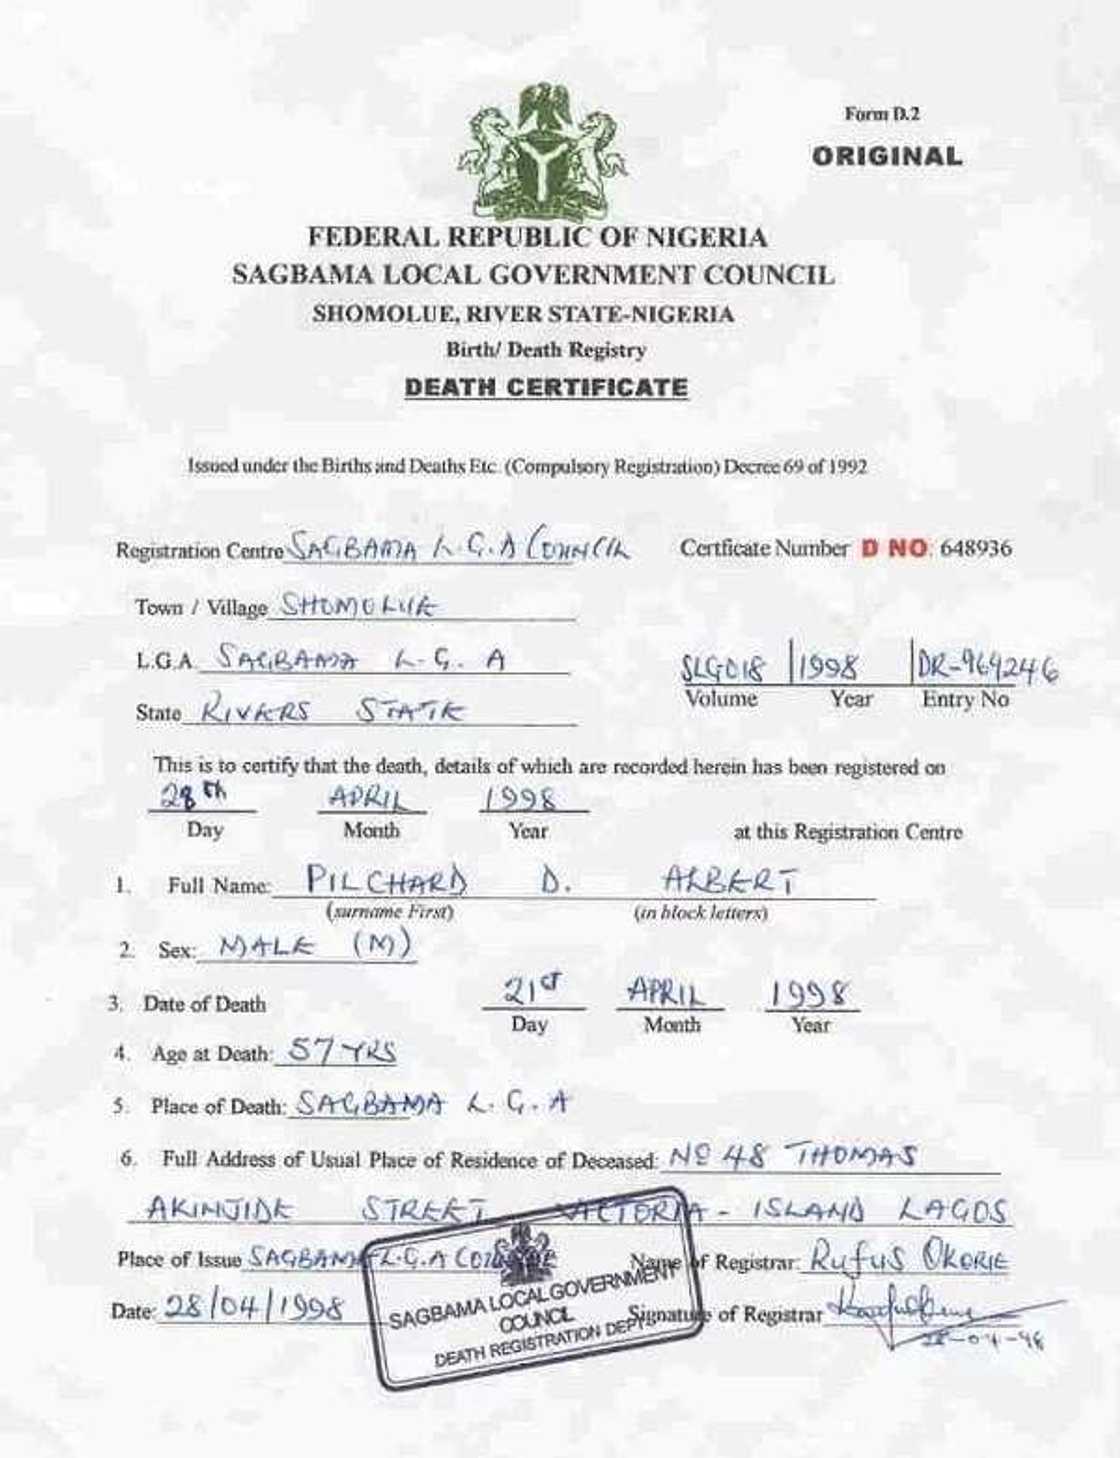 Form D.2
ORIGINAL
FEDERAL REPUBLIC OF NIGERIA
SAGBAMA LOCAL GOVERNMENT COUNCIL
SHOMOLUE, RIVER STATE-NIGERIA
Birth/ Death Registry
DEATH CERTIFICATE
Issued under the Births and Deaths Etc. (Compulsory Registration) Decree 69 of 1992
Registration Centre SAGBAMA L.G.A COUNCIL Certficate Number D NO: 648936
Town / Village SHOMOLUE
L.G.A. SAGBAMA L.G.A
SLG018 1998 DR-969246
Volume Year Entry No
State RIVERS STATE
This is to certify that the death, details of which are recorded herein has been registered on
28th APRIL 1998
Day Month Year at this Registration Centre
1. Full Name: PILCHARD D. ALBERT
(surname First) (in block letters)
2. Sex: MALE (M)
3. Date of Death 21st APRIL 1998
Day Month Year
4. Age at Death: 57 YRS
5. Place of Death: SAGBAMA L.G.A
6. Full Address of Usual Place of Residence of Deceased: NO 48 THOMAS
AKINJIDE STREET VICTORIA - ISLAND LAGOS
Place of Issue SAGBAMA L.G.A Name of Registrar: Rufus OKORIE
Date: 28/04/1998 Signature of Registrar
28-04-98
SAGBAMA LOCAL GOVERNMENT
COUNCIL
DEATH REGISTRATION DEPT